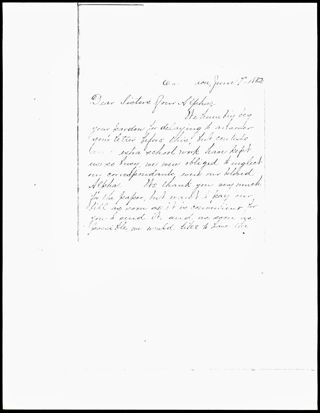 June 7th 1882
Dear Sisters
We humbly beg
your pardon for delaying to answer
your letter before this, but
extra school work have kept
us so busy we were obliged to neglect
our correspondents, even our beloved
Alpha. We thank you very much
for the paper, but want to pay our
bill as soon as it is convenient for
you to send it and as soon as
possible we would like to have the